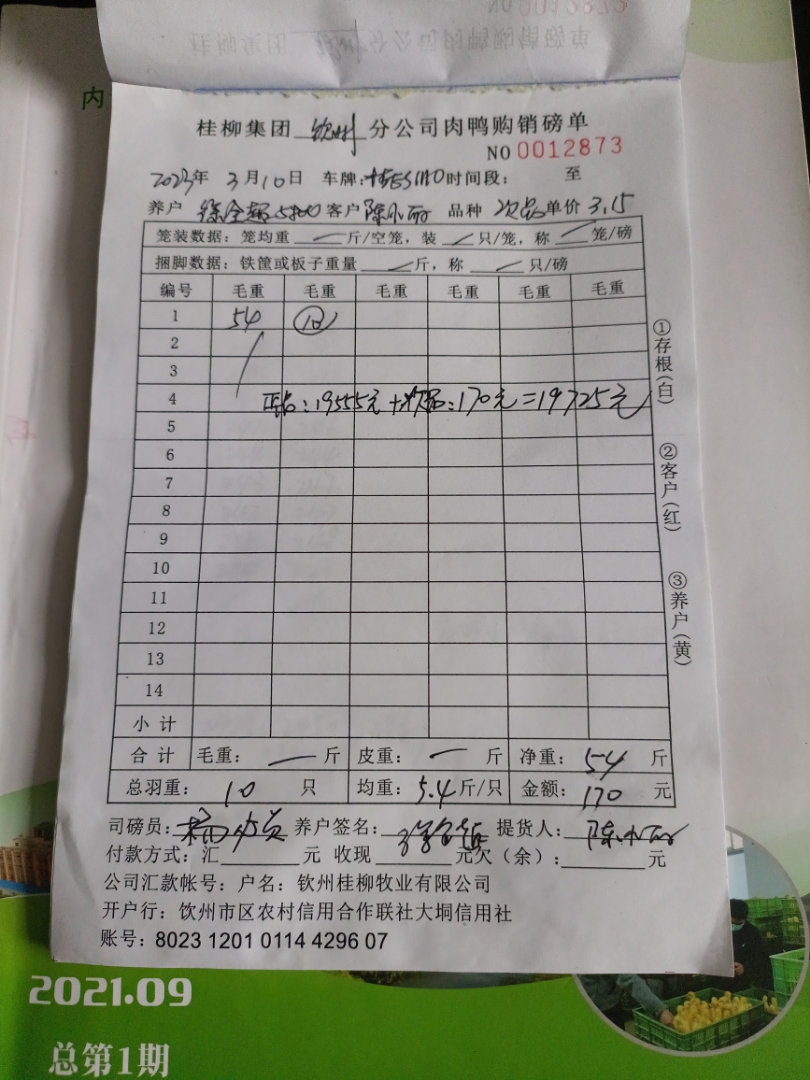 内
桂柳集团 钦州 分公司肉鸭购销磅单
NO 0012873
2023年 3月10日 车牌: 时间段: 至
养户 徐全超5800 客户 陈小丽 品种 次品 单价 3.15
笼装数据: 笼均重 斤/空笼, 装 只/笼, 称 笼/磅
捆脚数据: 铁筐或板子重量 斤, 称 只/磅
编号 毛重 毛重 毛重 毛重 毛重 毛重
1 54 10
2
3
4 正品:19555元+次品:170元=19725元
5
6
7
8
9
10
11
12
13
14
小计
合计 毛重: 斤 皮重: 斤 净重: 54 斤
总羽重: 10 只 均重: 5.4斤/只 金额: 170 元
司磅员: 养户签名: 提货人: 陈小丽
付款方式: 汇 元 收现 元欠(余): 元
公司汇款帐号: 户名: 钦州桂柳牧业有限公司
开户行: 钦州市区农村信用合作联社大垌信用社
账号: 8023 1201 0114 4296 07
①存根(白)
②客户(红)
③养户(黄)
2021.09
总第1期